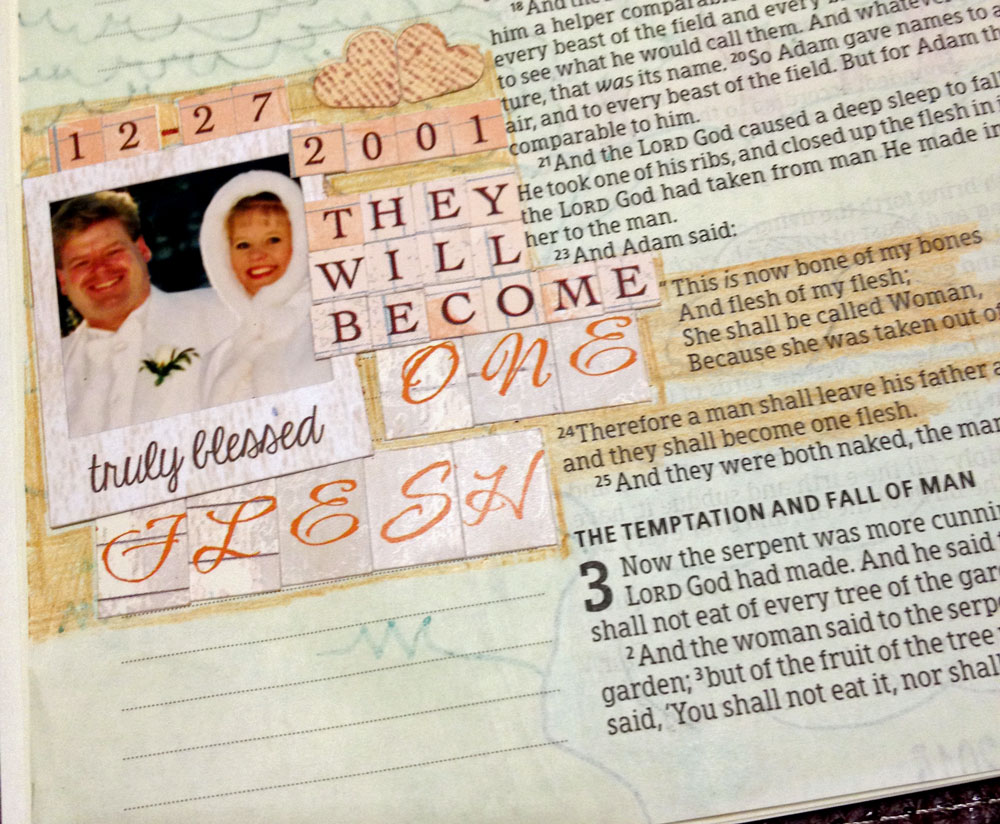 12-27
2001
THEY
WILL
BECOME
ONE
FLESH
truly blessed
18 And the
him a helper comparable
every beast of the field and every
to see what he would call them. And whatever
ture, that was its name. 20 So Adam gave names to a
air, and to every beast of the field. But for Adam th
comparable to him.
21 And the LORD God caused a deep sleep to fall
He took one of his ribs, and closed up the flesh in
the LORD God had taken from man He made in
her to the man.
23 And Adam said:
"This is now bone of my bones
And flesh of my flesh;
She shall be called Woman,
Because she was taken out of
24 Therefore a man shall leave his father a
and they shall become one flesh.
25 And they were both naked, the man
THE TEMPTATION AND FALL OF MAN
3 Now the serpent was more cunnin
LORD God had made. And he said t
shall not eat of every tree of the gar
2 And the woman said to the serp
garden; 3 but of the fruit of the tree
said, 'You shall not eat it, nor shall